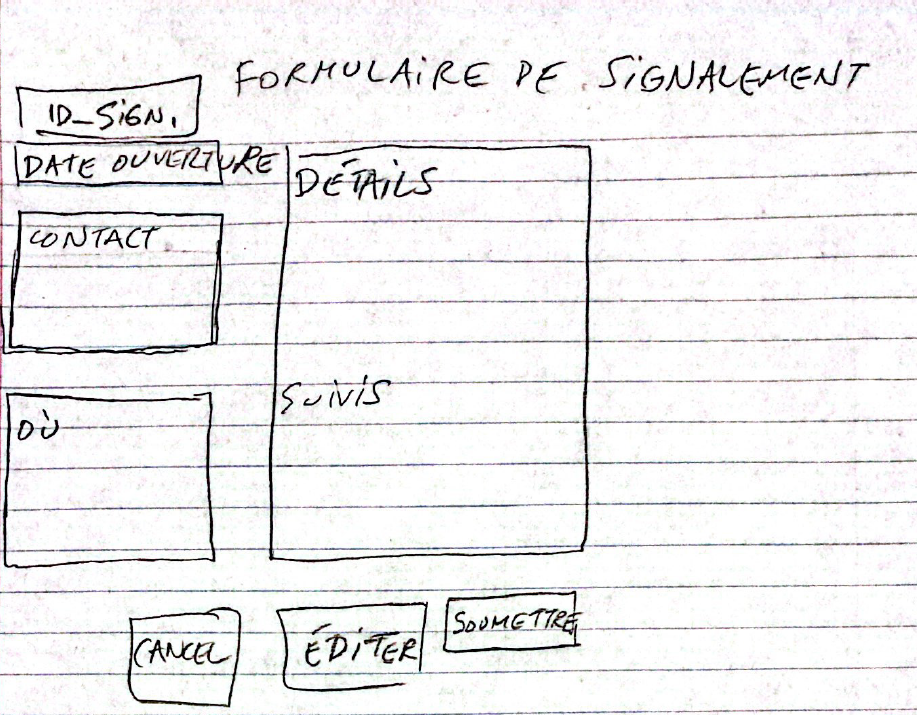 FORMULAIRE DE SIGNALEMENT
ID_SIGN.
DATE OUVERTURE
DÉTAILS
CONTACT
SUIVIS
OÙ
CANCEL
ÉDITER
SOUMETTRE